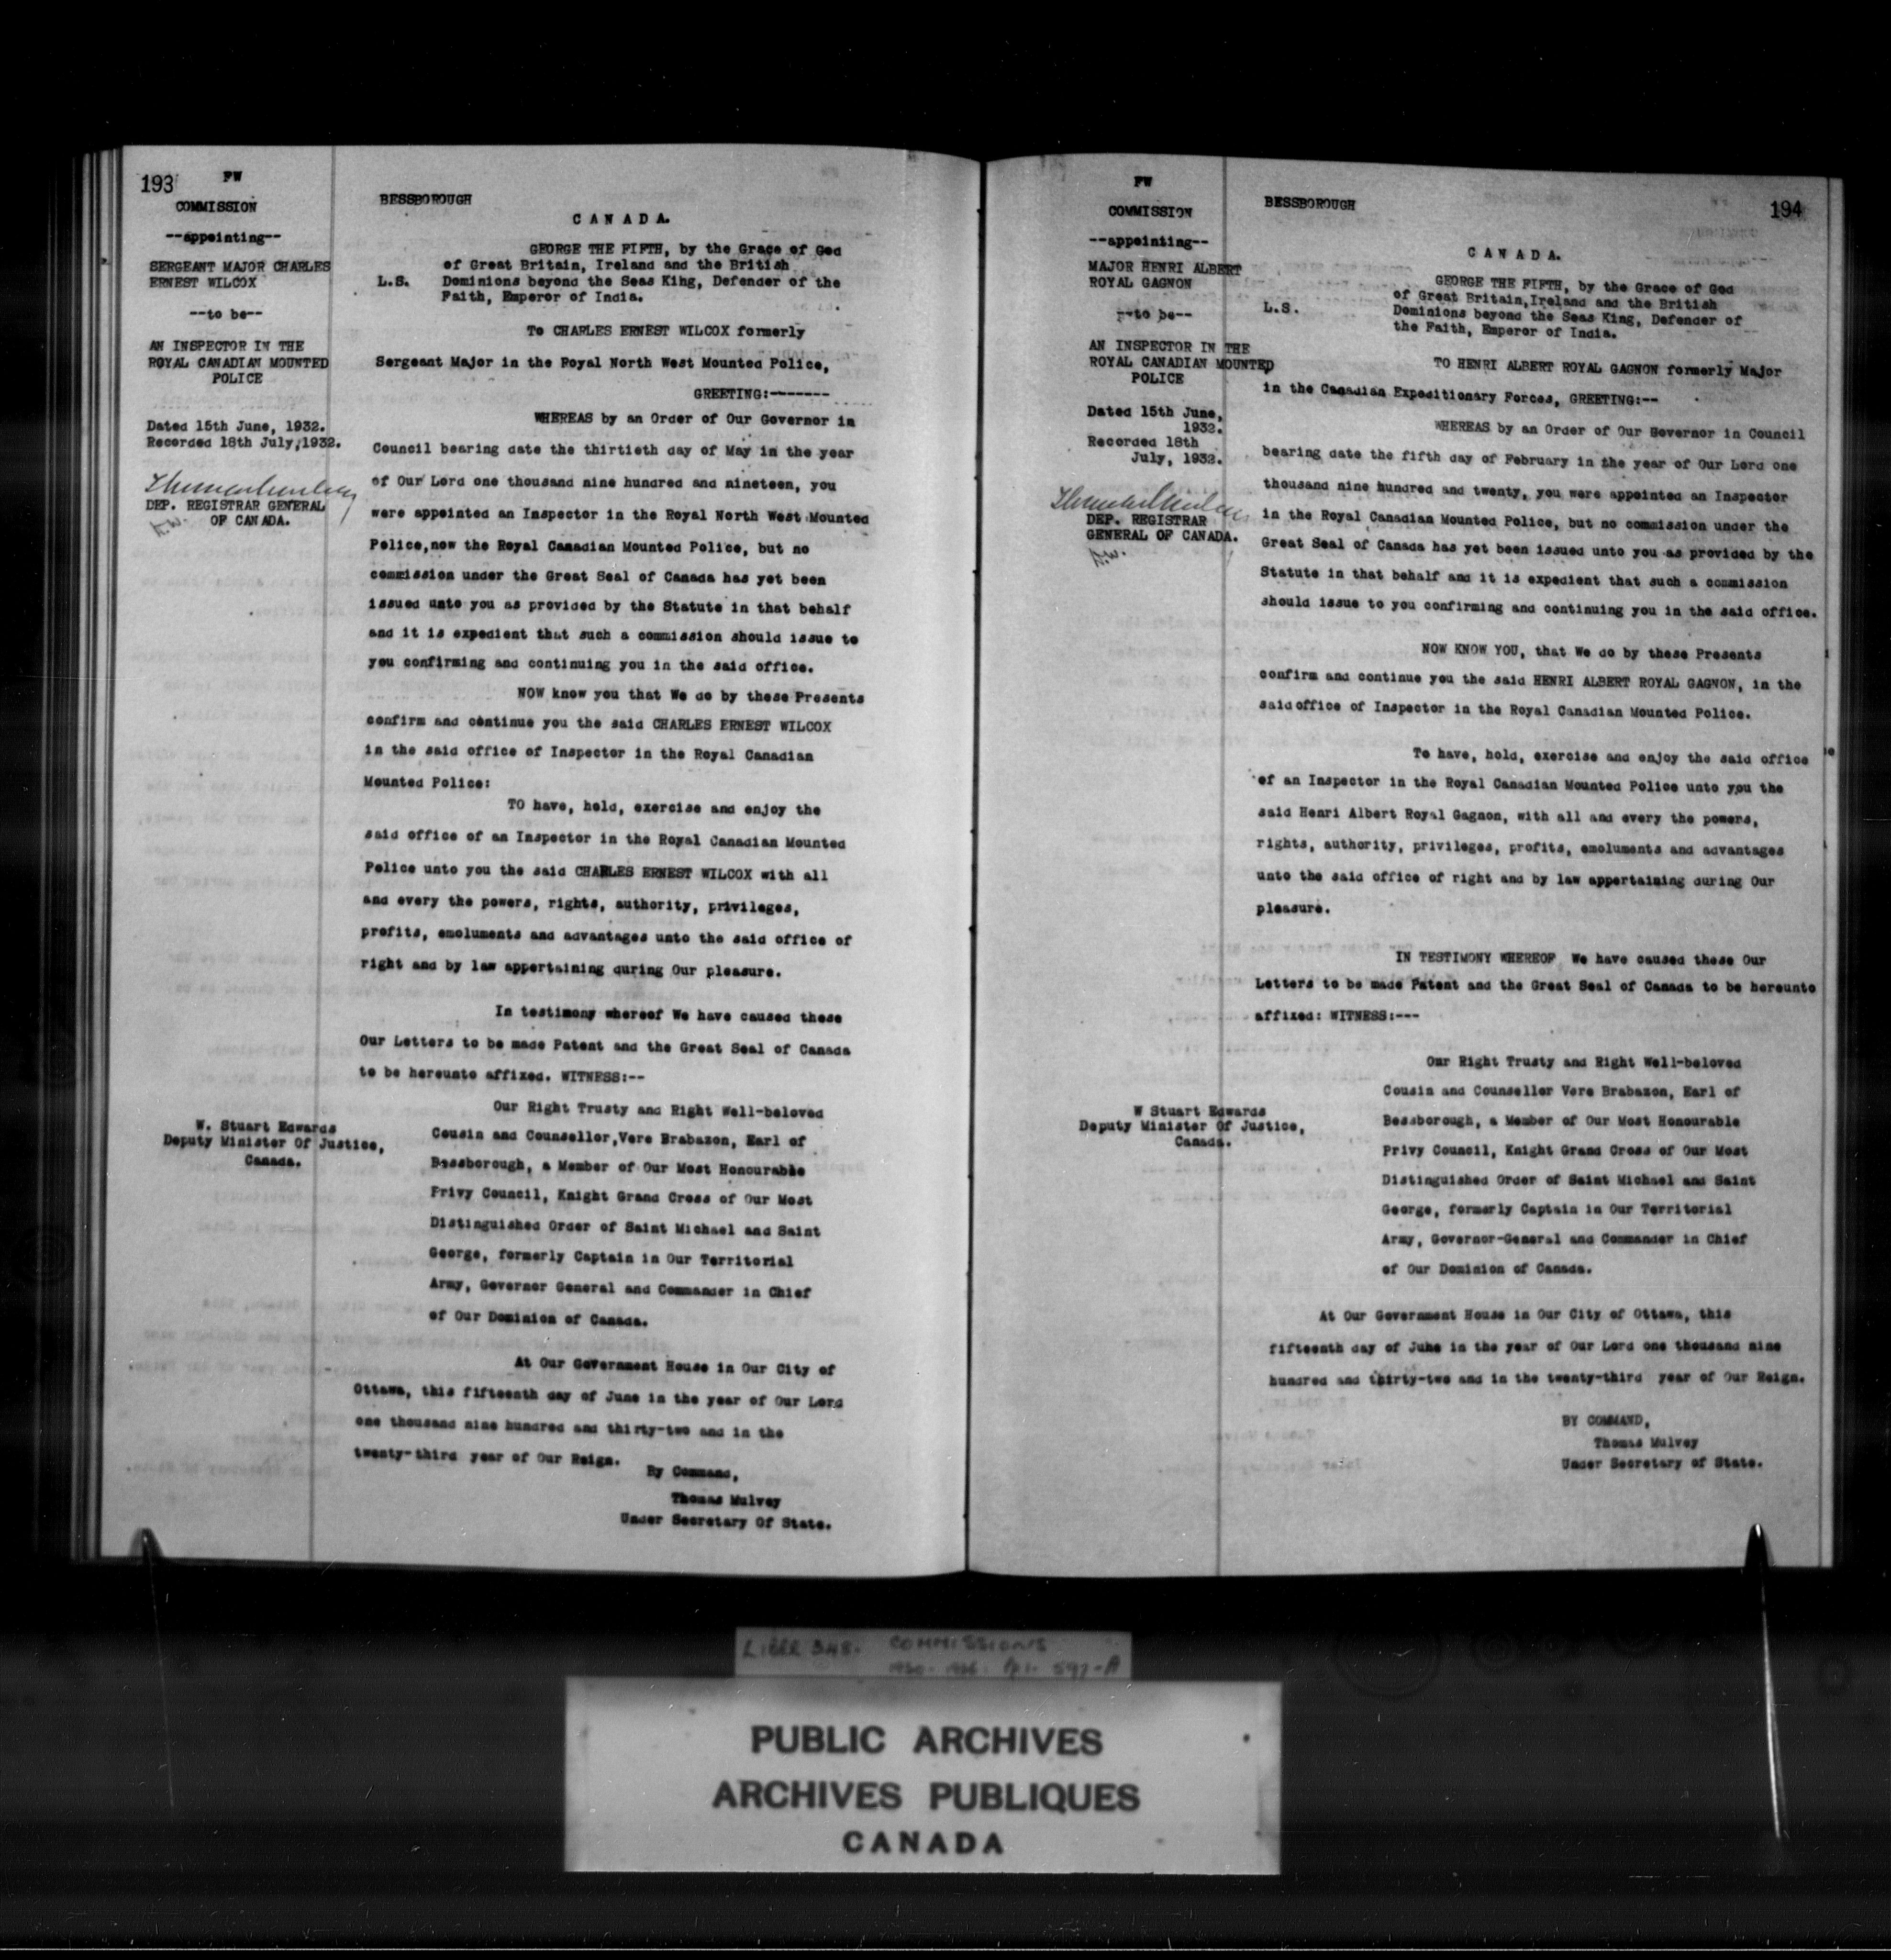 193
FW
COMMISSION
--appointing--
SERGEANT MAJOR CHARLES
ERNEST WILCOX
--to be--
AN INSPECTOR IN THE
ROYAL CANADIAN MOUNTED
POLICE
Dated 15th June, 1932.
Recorded 18th July,1932.
DEP. REGISTRAR GENERAL
OF CANADA.
W. Stuart Edwards
Deputy Minister Of Justice,
Canada.
BESSBOROUGH
CANADA.
GEORGE THE FIFTH, by the Grace of God
of Great Britain, Ireland and the British
L.S. Dominions beyond the Seas King, Defender of the
Faith, Emperor of India.
To CHARLES ERNEST WILCOX formerly
Sergeant Major in the Royal North West Mounted Police,
GREETING:-------
WHEREAS by an Order of Our Governor in
Council bearing date the thirtieth day of May in the year
of Our Lord one thousand nine hundred and nineteen, you
were appointed an Inspector in the Royal North West Mounted
Police,now the Royal Canadian Mounted Police, but no
commission under the Great Seal of Canada has yet been
issued unto you as provided by the Statute in that behalf
and it is expedient that such a commission should issue to
you confirming and continuing you in the said office.
NOW know you that We do by these Presents
confirm and continue you the said CHARLES ERNEST WILCOX
in the said office of Inspector in the Royal Canadian
Mounted Police:
TO have, hold, exercise and enjoy the
said office of an Inspector in the Royal Canadian Mounted
Police unto you the said CHARLES ERNEST WILCOX with all
and every the powers, rights, authority, privileges,
profits, emoluments and advantages unto the said office of
right and by law appertaining during Our pleasure.
In testimony whereof We have caused these
Our Letters to be made Patent and the Great Seal of Canada
to be hereunto affixed. WITNESS:--
Our Right Trusty and Right Well-beloved
Cousin and Counsellor,Vere Brabazon, Earl of
Bessborough, a Member of Our Most Honourable
Privy Council, Knight Grand Cross of Our Most
Distinguished Order of Saint Michael and Saint
George, formerly Captain in Our Territorial
Army, Governor General and Commander in Chief
of Our Dominion of Canada.
At Our Government House in Our City of
Ottawa, this fifteenth day of June in the year of Our Lord
one thousand nine hundred and thirty-two and in the
twenty-third year of Our Reign.
By Command,
Thomas Mulvey
Under Secretary Of State.
FW
COMMISSION
--appointing--
MAJOR HENRI ALBERT
ROYAL GAGNON
--to be--
AN INSPECTOR IN THE
ROYAL CANADIAN MOUNTED
POLICE
Dated 15th June,
1932.
Recorded 18th
July, 1932.
DEP. REGISTRAR
GENERAL OF CANADA.
W Stuart Edwards
Deputy Minister Of Justice,
Canada.
BESSBOROUGH
194
CANADA.
GEORGE THE FIFTH, by the Grace of God
of Great Britain,Ireland and the British
L.S. Dominions beyond the Seas King, Defender of
the Faith, Emperor of India.
TO HENRI ALBERT ROYAL GAGNON formerly Major
in the Canadian Expeditionary Forces, GREETING:--
WHEREAS by an Order of Our Governor in Council
bearing date the fifth day of February in the year of Our Lord one
thousand nine hundred and twenty, you were appointed an Inspector
in the Royal Canadian Mounted Police, but no commission under the
Great Seal of Canada has yet been issued unto you as provided by the
Statute in that behalf and it is expedient that such a commission
should issue to you confirming and continuing you in the said office.
NOW KNOW YOU, that We do by these Presents
confirm and continue you the said HENRI ALBERT ROYAL GAGNON, in the
said office of Inspector in the Royal Canadian Mounted Police.
To have, hold, exercise and enjoy the said office
of an Inspector in the Royal Canadian Mounted Police unto you the
said Henri Albert Royal Gagnon, with all and every the powers,
rights, authority, privileges, profits, emoluments and advantages
unto the said office of right and by law appertaining during Our
pleasure.
IN TESTIMONY WHEREOF We have caused these Our
Letters to be made Patent and the Great Seal of Canada to be hereunto
affixed: WITNESS:---
Our Right Trusty and Right Well-beloved
Cousin and Counsellor Vere Brabazon, Earl of
Bessborough, a Member of Our Most Honourable
Privy Council, Knight Grand Cross of Our Most
Distinguished Order of Saint Michael and Saint
George, formerly Captain in Our Territorial
Army, Governor-General and Commander in Chief
of Our Dominion of Canada.
At Our Government House in Our City of Ottawa, this
fifteenth day of June in the year of Our Lord one thousand nine
hundred and thirty-two and in the twenty-third year of Our Reign.
BY COMMAND,
Thomas Mulvey
Under Secretary of State.
LIBER COMMISSIONS
PUBLIC ARCHIVES
ARCHIVES PUBLIQUES
CANADA